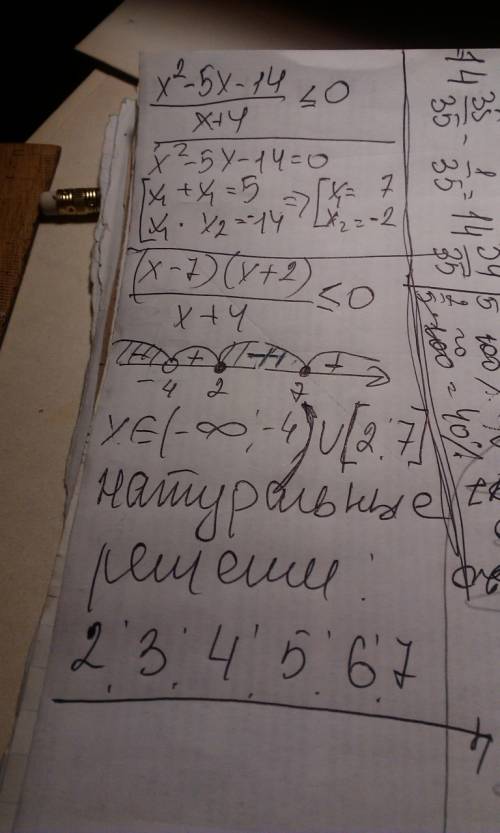 x²-5x-14
x+4 ≤ 0
x²-5x-14=0
x₁ + x₁ = 5 => x₁ = 7
x₁ · x₂ = -14 x₂ = -2
(x-7)(x+2)
x+4 ≤ 0
+ +
-4 2 7
x∈(-∞; -4)∪[2; 7]
натуральные
решения:
2; 3; 4; 5; 6; 7